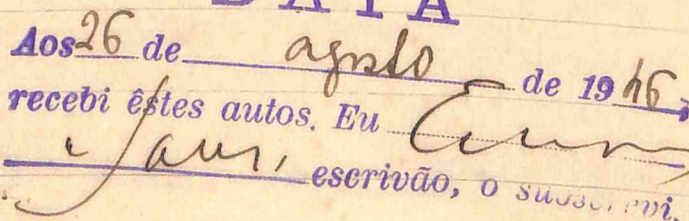 DATA
Aos 26 de agosto de 1946,
recebi êstes autos. Eu
escrivão, o subscrevi.